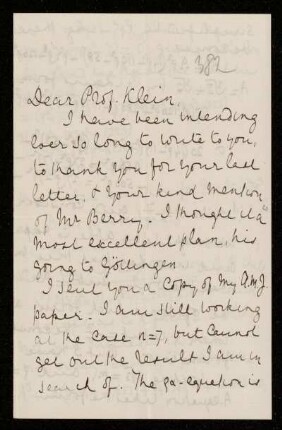 382
Dear Prof. Klein,
I have been intending
ever so long to write to you,
to thank you for your last
letter, & your kind mention
of Mr Berry. I thought it a
most excellent plan, his
going to Göttingen
I sent you a copy of my A.M.J.
paper. I am still working
at the case n=7, but cannot
get out the result I am in
search of. The ga-equation is